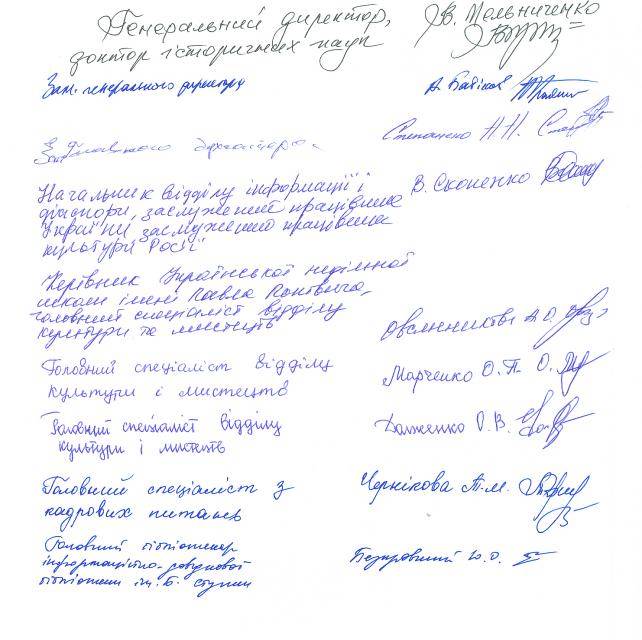 Генеральний директор, В. Мельниченко
доктор історичних наук
Зам. генерального директора А. Бабіков
Зам. Главного бухгалтера Степаненко Н.Н.
Начальник відділу інформації і В. Скопенко
діаспори, заслужений працівник
України заслужений працівник
культури Росії
Керівник Української недільної
школи імені Павла Поповича,
головний спеціаліст відділу
культури та мистецтв
Головний спеціаліст відділу Марченко О.П.
культури і мистецтв
Головний спеціаліст відділу Долженко О.В.
культури і мистецтв
Головний спеціаліст з Чернікова Т.М.
кадрових питань
Головний бібліотекар
інформаційно-довідкової Ю.О.
бібліотеки ім. Б. Ступки